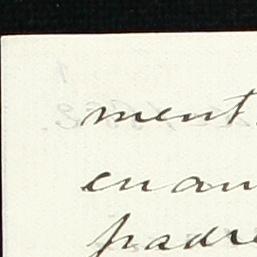 ment
en am
padre